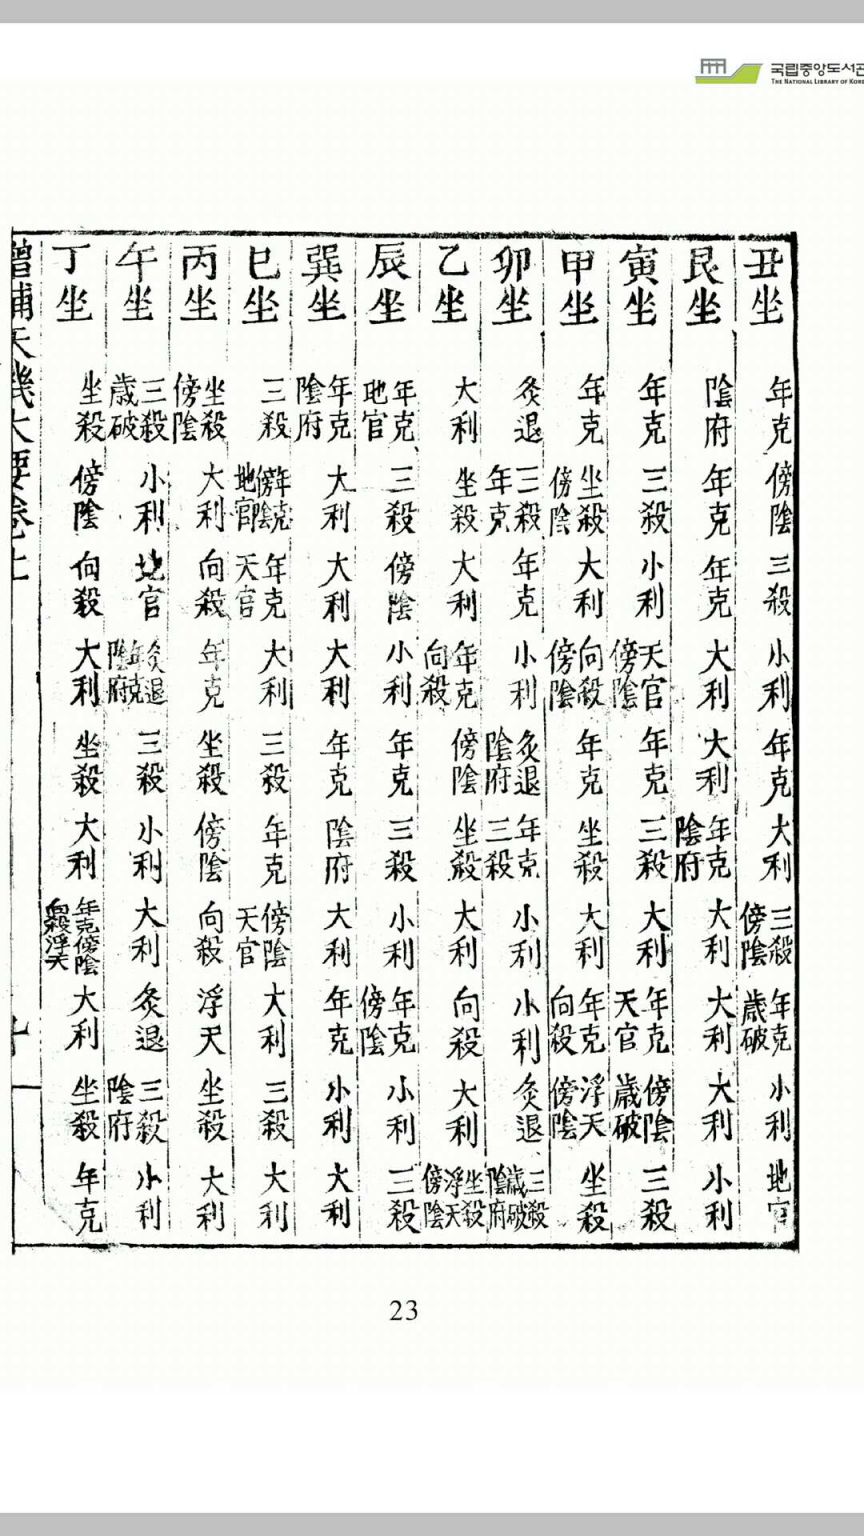 국립중앙도서관
THE NATIONAL LIBRARY OF KOREA
丑坐 年克 傍陰 三殺 小利 年克 大利 三殺傍陰 年克歲破 小利 地官
艮坐 陰府 年克 年克 大利 大利 年克陰府 大利 大利 大利 小利
寅坐 年克 三殺 小利 天官傍陰 年克 三殺 大利 年克天官 傍陰歲破 三殺
甲坐 年克 坐殺傍陰 大利 向殺傍陰 年克 坐殺 大利 年克向殺 浮天傍陰 坐殺
卯坐 灸退 三殺年克 年克 小利 灸退陰府 年克三殺 小利 小利 灸退 三殺歲破陰府
乙坐 大利 坐殺 大利 年克向殺 傍陰 坐殺 大利 向殺 大利 坐殺浮天傍陰
辰坐 年克地官 三殺 傍陰 小利 年克 三殺 小利 年克傍陰 小利 三殺
巽坐 年克陰府 大利 大利 大利 年克 陰府 大利 年克 小利 大利
巳坐 三殺 年克傍陰地官 年克天官 大利 三殺 年克 傍陰天官 大利 三殺 大利
丙坐 坐殺傍陰 大利 向殺 年克 坐殺 傍陰 向殺 浮天 坐殺 大利
午坐 三殺歲破 小利 地官 灸退年克陰府 三殺 小利 大利 灸退 三殺陰府 小利
丁坐 坐殺 傍陰 向殺 大利 坐殺 大利 年克傍陰向殺浮天 大利 坐殺 年克
增補天機大要卷上
23